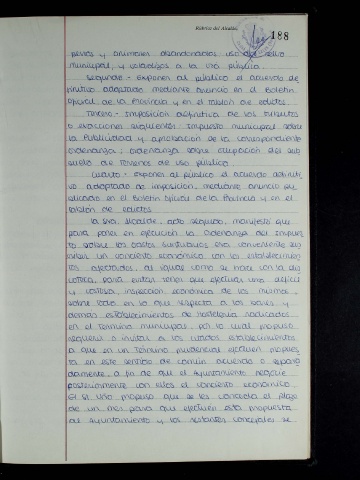 Rúbrica del Alcalde,
188
perros y animales abandonados, uso del sello
municipal, y velatorios a la vía pública.
Segundo - Exponer al público el acuerdo de-
finitivo adoptado mediante anuncio en el Boletín
Oficial de la Provincia y en el tablón de edictos.
Tercero - Imposición definitiva de los tributos
o exacciones siguientes: impuesto municipal sobre
la publicidad y aprobación de la correspondiente
ordenanza; ordenanza sobre ocupación del sub
suelo de terrenos de uso público.
Cuarto - Exponer al público el acuerdo definiti-
vo adoptado de imposición, mediante anuncio pu-
blicado en el Boletín Oficial de la Provincia y en el
tablón de edictos.
La Sra. Alcalde, acto seguido, manifestó que
para poner en ejecución la ordenanza del impues
to sobre los gastos suntuarios era conveniente rea
lizar un concierto económico con los establecimien
tos afectados, al igual como se hace con la dis
coteca, para evitar tener que efectuar una difícil
y costosa inspección económica de los mismos
sobre todo en lo que respecta a los bares y
demás establecimientos de hostelería radicados
en el término municipal, por lo cual propuso
requerir e invitar a los citados establecimientos
a que en un término prudencial efectúen propues
ta en este sentido de común acuerdo o separa
damente, a fin de que el Ayuntamiento negocie
posteriormente con ellos el concierto económico.
El Sr. Uño propuso que se les conceda el plazo
de un mes para que efectúen esta propuesta
al Ayuntamiento y los restantes concejales se